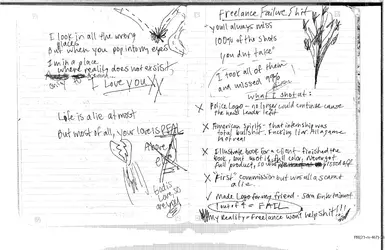 I look in all the wrong
places
But when you pop into my eyes
I'm in a place
where reality does not exist
only
I Love you XX
Life is a lie at most
But most of all, your love is REAL
Above
else
God is
Love, so
are you
Freelance Failure Shit
"you'll always miss
100% of the shots
you don't take"
I took all of them
and missed 99%
What I shot at:
X Police Logo - no longer could continue cause
the head leader left
X American Spirit - that internship was
total bullshit. Fucking liar.
X Illustrate book for a client - finished the
book, but
full product, so
X "First" commission but was all a scam &
a lie.
✓ Made Logo for my friend - Scam Entertainment
1 out of 4 = FAIL
My Reality = Freelance won't help shit!!!